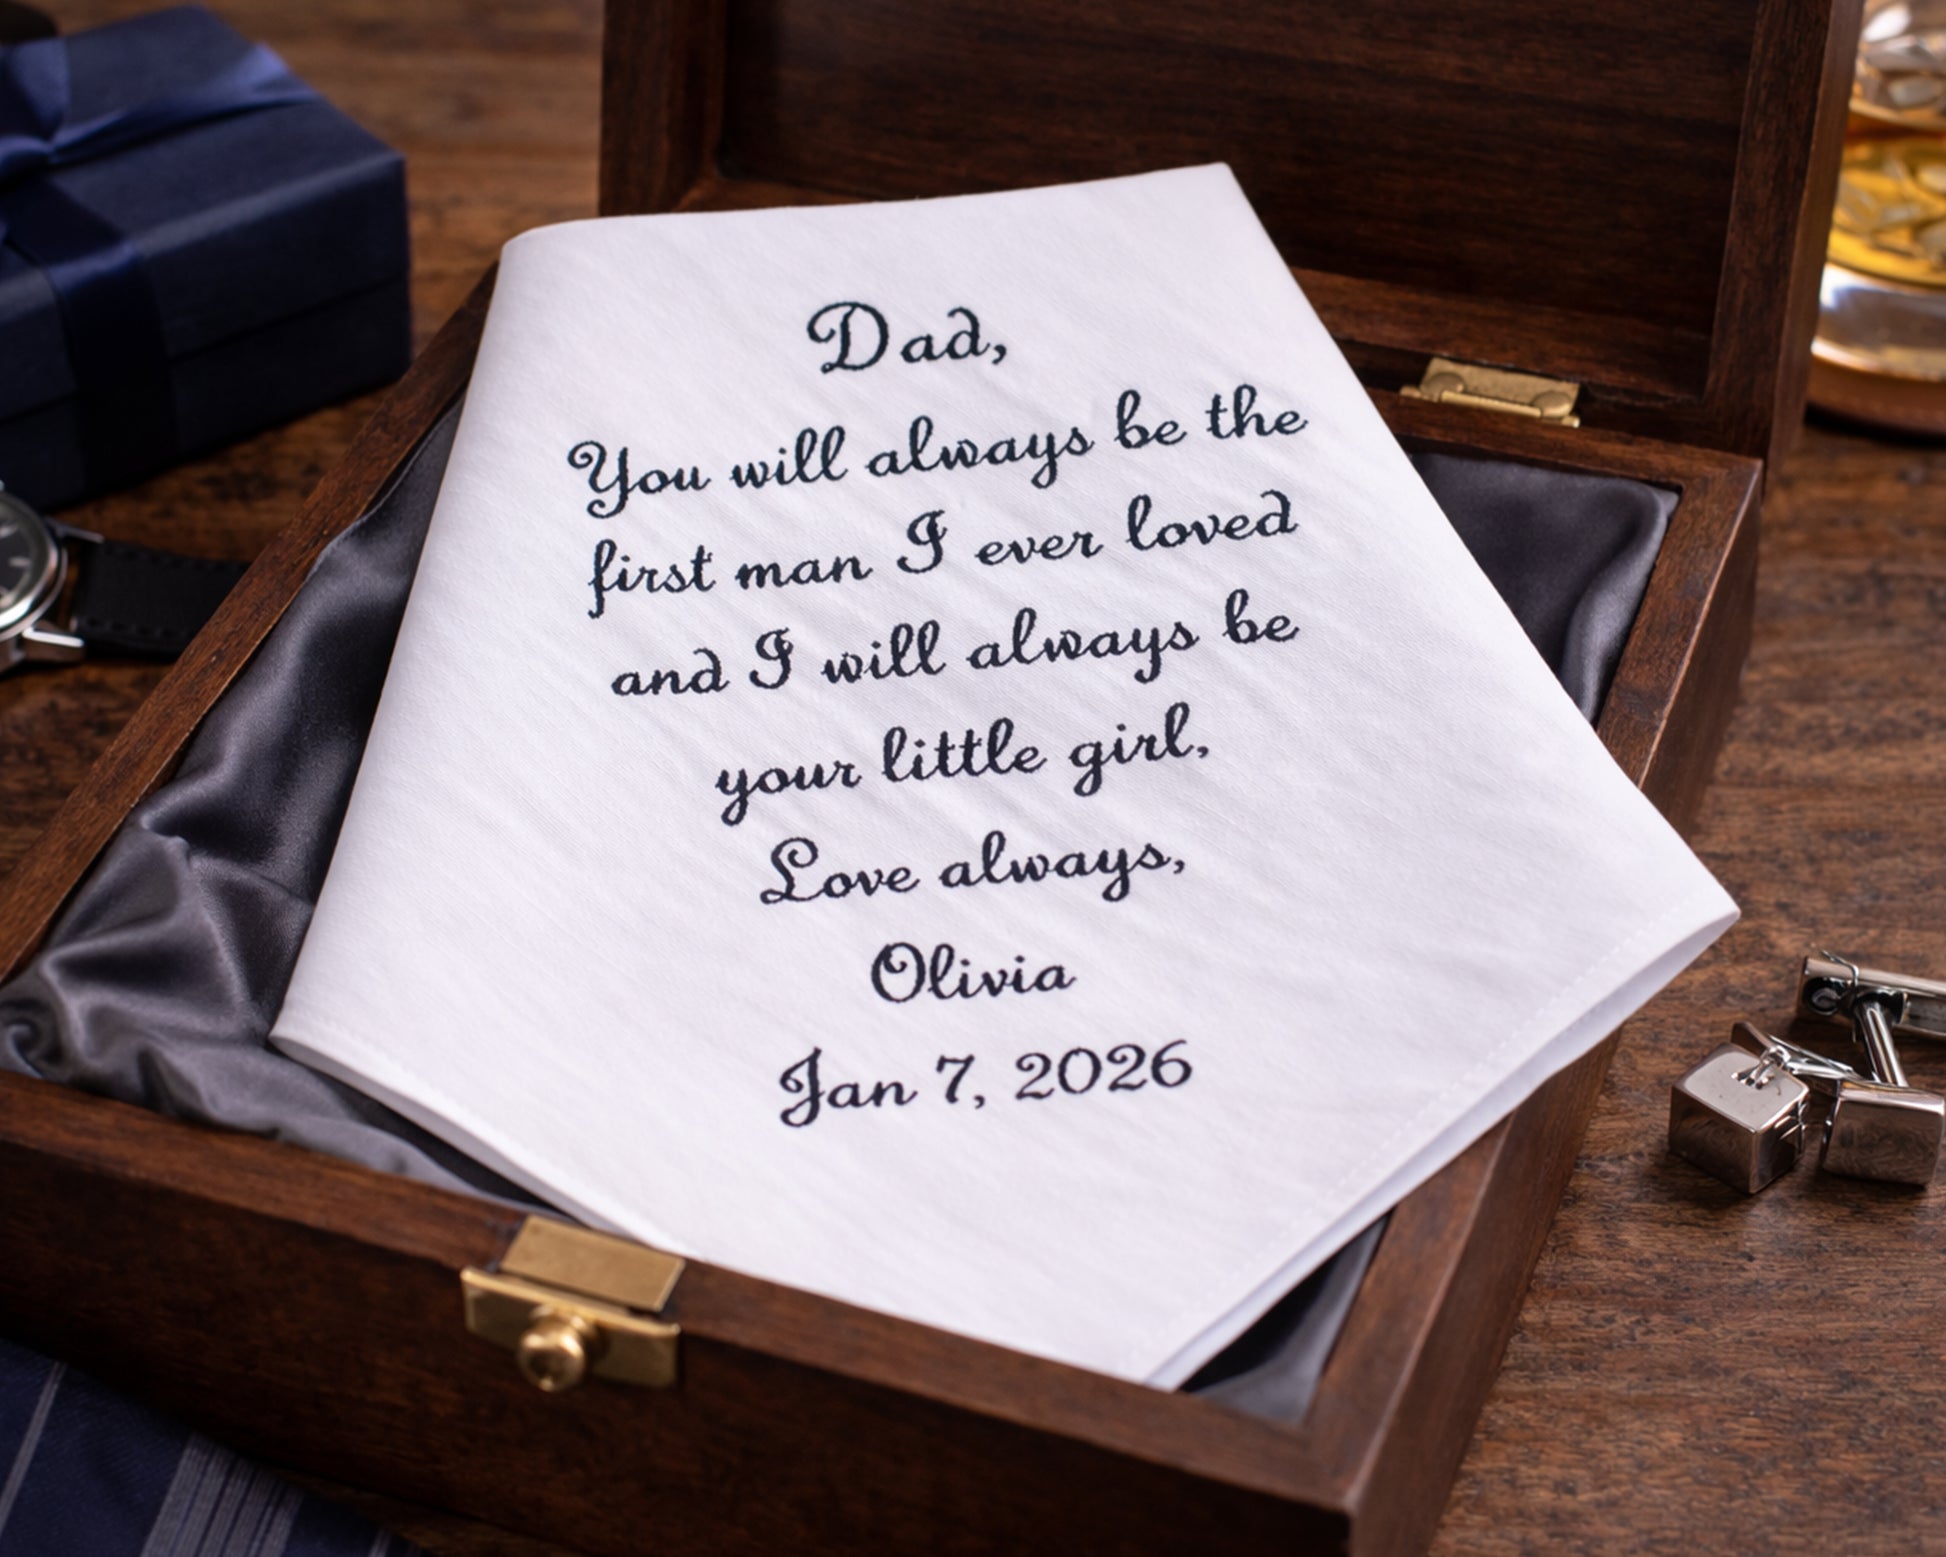 Dad,
You will always be the
first man I ever loved
and I will always be
your little girl,
Love always,
Olivia
Jan 7, 2026